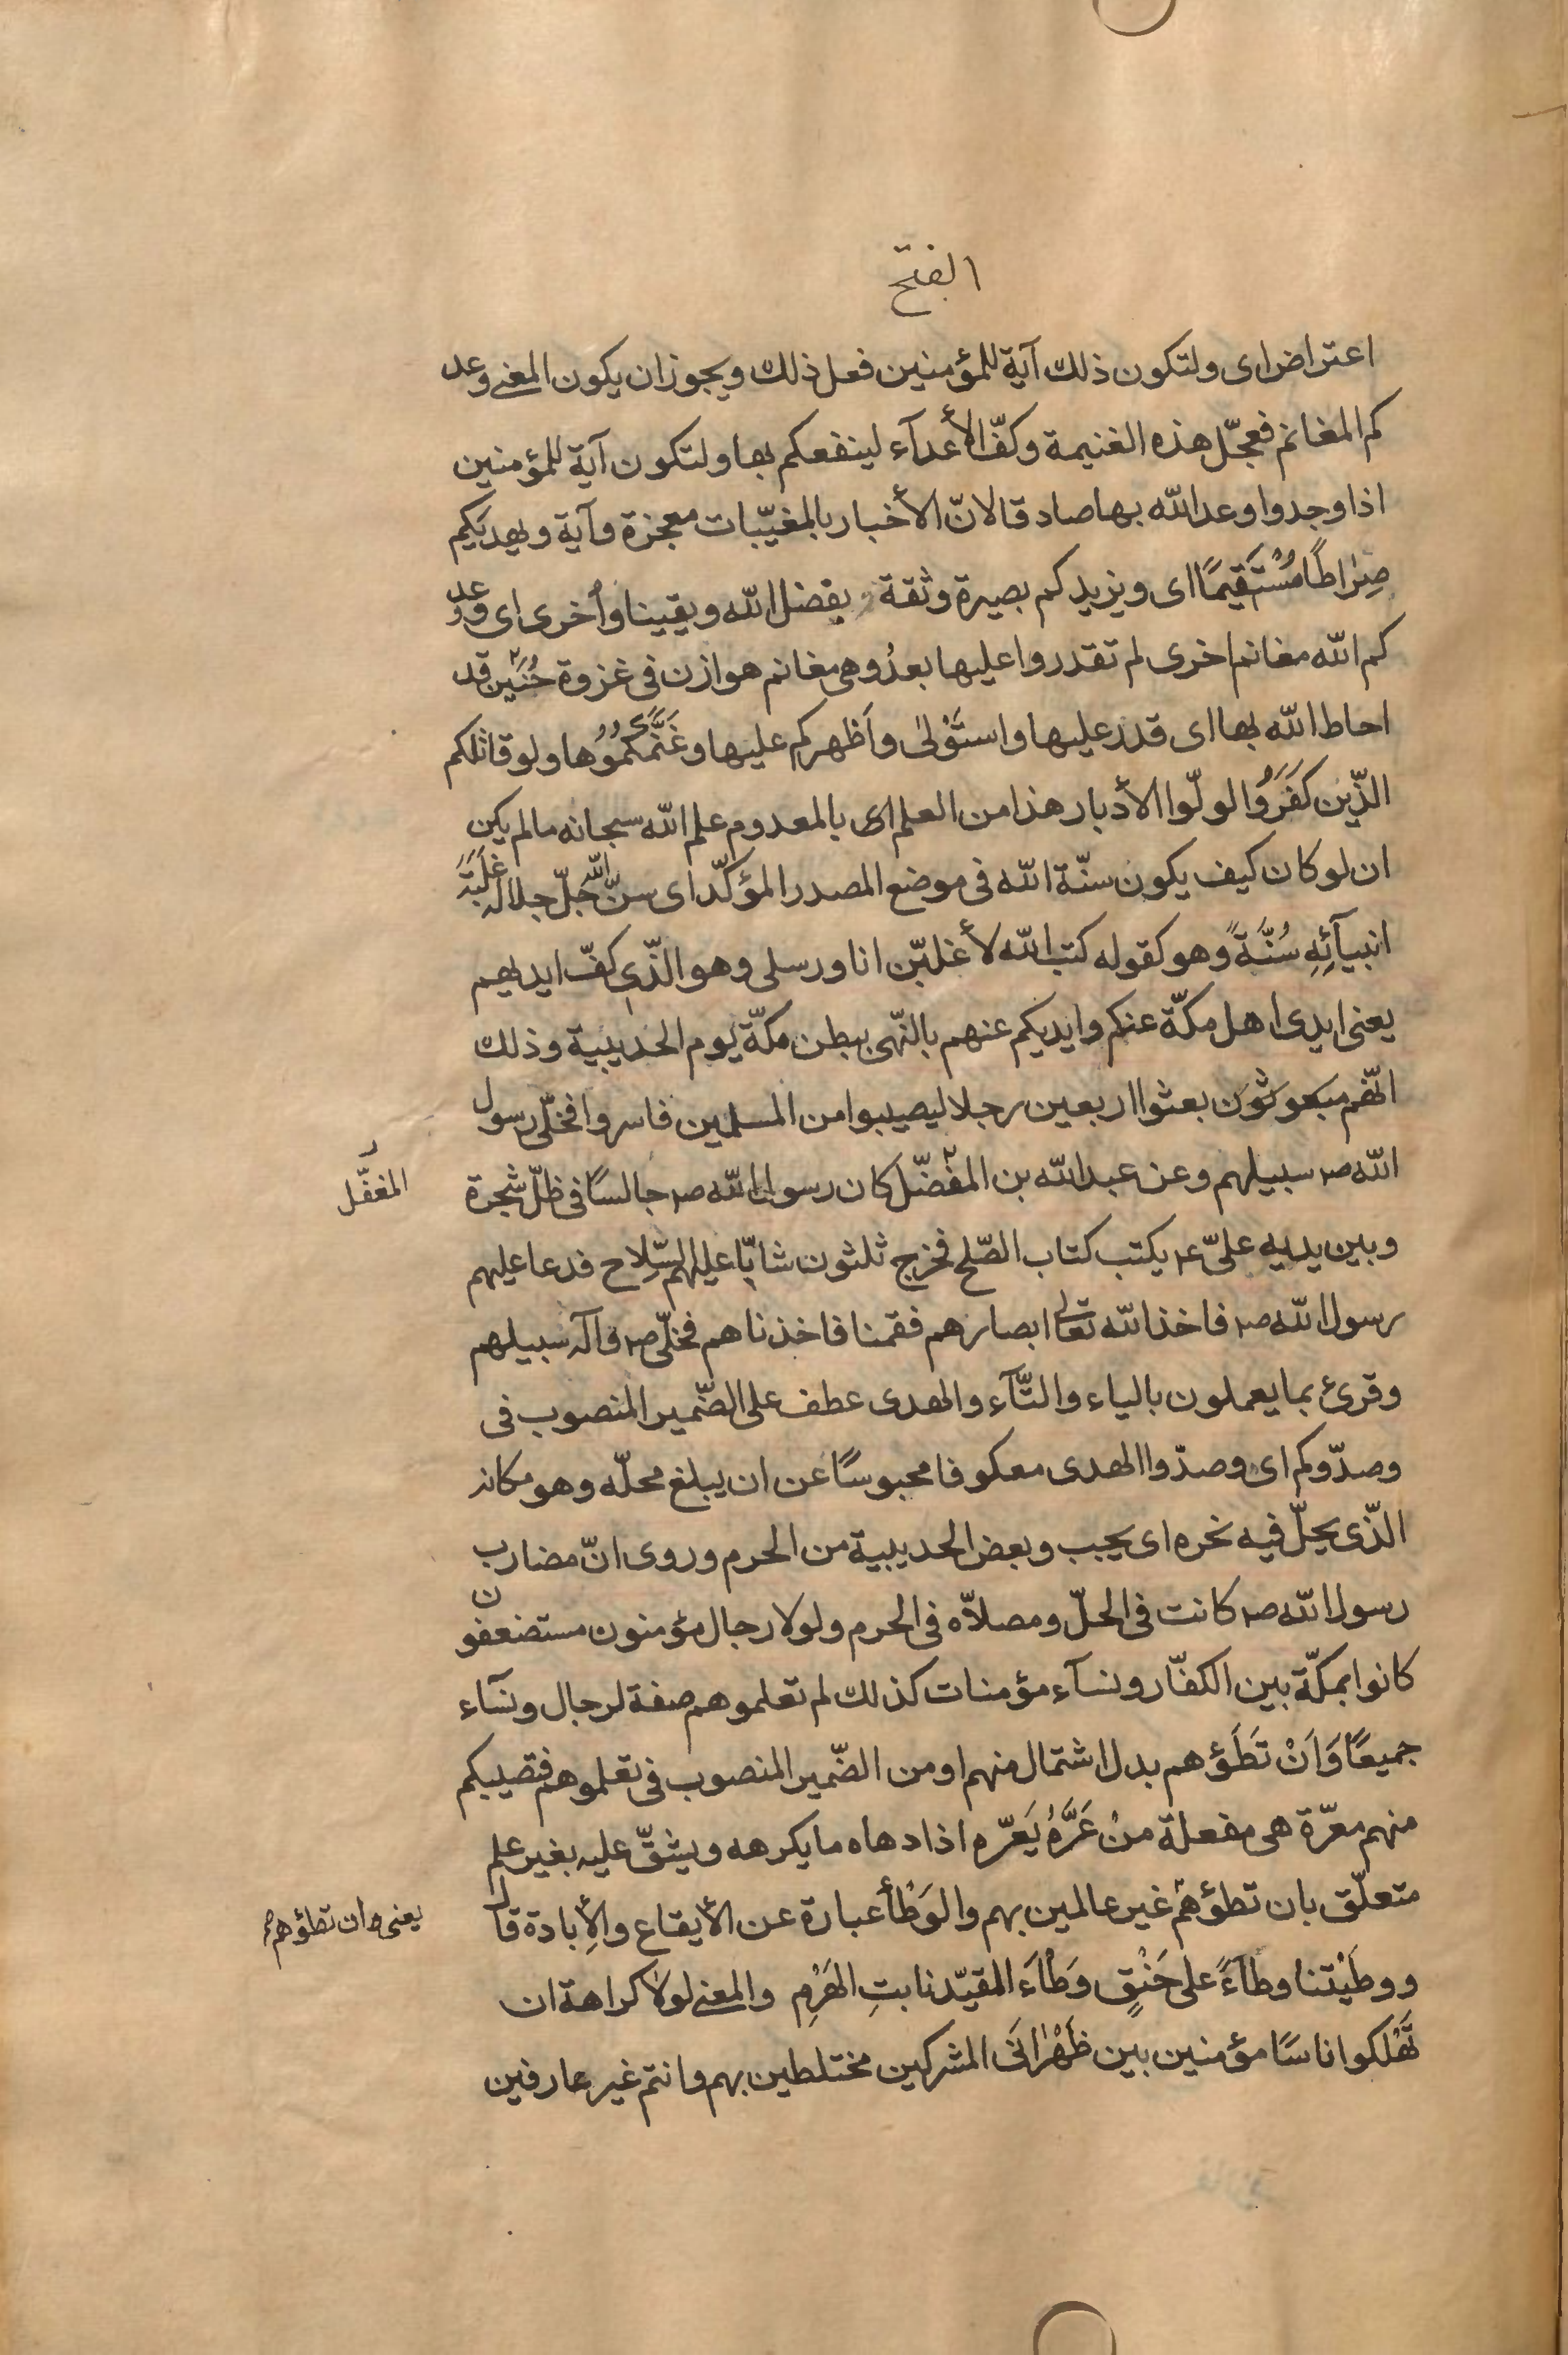 الفتح
اعتراض اى ولتكون ذلك آية للمؤمنين فعل ذلك ويجوز ان يكون المعنى وعد
كم المغانم فعجّل هذه الغنيمة وكفّ الأعدآء لينفعكم بها ولتكون آية للمؤمنين
اذا وجدوا وعد الله بها صادقا لانّ الأخبار بالمغيّبات معجزة وآية ويهديكم
صِرٰاطًا مُسْتَقيمًا اى ويزيدكم بصيرة وثقة بفضل الله ويقينا وأُخرى اى وعد
كم الله مغانم اخرى لم تقدروا عليها بعدُ وهى مغانم هوازن فى غزوة حُنَين قد
احاط الله بها اى قدر عليها واستَوْلىٰ وأَظهركم عليها وغَنَّمَكُمُوُها ولو قاتلكم
الّذين كَفَرَوُا لولّوا الأدبار هذا من العلم اى بالمعدوم علم الله سبحانه مالم يكن
ان لو كان كيف يكون سنّة الله فى موضع المصدر المؤكّد اى سنّ الله جلّ جلاله غَلَبَةَ
انبيآئِهِ سُنَّةً وهو كقوله كتب الله لأغلبّن انا ورسلى وهو الّذى كفّ ايديهم
يعنى ايدى اهل مكّة عنكم وايديكم عنهم بالنّهى ببطن مكّة يوم الحديبية وذلك
انّهم مبعوثون بعثوا اربعين رجلا ليصيبوا من المسلمين فاسروا فخلّى رسول
الله ص سبيلهم وعن عبد الله بن المفضّل كان رسول الله ص جالسًا فى ظلّ شجرة
المغفَّل
وبين يديه علىّ ع يكتب كتاب الصّلح فخرج ثلثون شابّا عليهم السّلاح فدعا عليهم
رسول الله ص فاخذ الله تعالى ابصارهم فقمنا فاخذناهم فخلّى ص وآله سبيلهم
وقرئ بما يعملون بالياء والتّآء والهدى عطف على الضّمير المنصوب فى
وصدّوكم اى وصدّوا الهدى معكوفا محبوسًا عن ان يبلغ محلّه وهو مكانه
الّذى يحلّ فيه نحره اى يجب وبعض الحديبية من الحرم وروى انّ مضارب
رسول الله ص كانت فى الحلّ ومصلّاه فى الحرم ولولا رجال مؤمنون مستضعفون
كانوا بمكّة بين الكفّار ونسآء مؤمنات كذلك لم تعلموهم صفة لرجال ونسآء
جميعًا وَاَنْ تَطَؤهم بدل اشتمال منهم او من الضّمير المنصوب فى تعلموهم فتصيبكم
منهم معرّة هى مفعلة منْ عَرَّهُ يَعَرّه اذا دهاه ما يكرهه ويشقّ عليه بغير علم
متعلّق بان تطؤهم غير عالمين بهم والوَطْأ عبارة عن الأيقاع والإبادة قال
يعنى وان تطؤهم
ووطَيْتنا وطآءً على حَنْقٍ وَطْاَءَ المقيّد نابتِ الهَرْمِ والمعنى لولا كراهة ان
تَهْلكوا اناسًا مؤمنين بين ظَهْرٰانَى المشركين مختلطين بهم وانتم غير عارفين